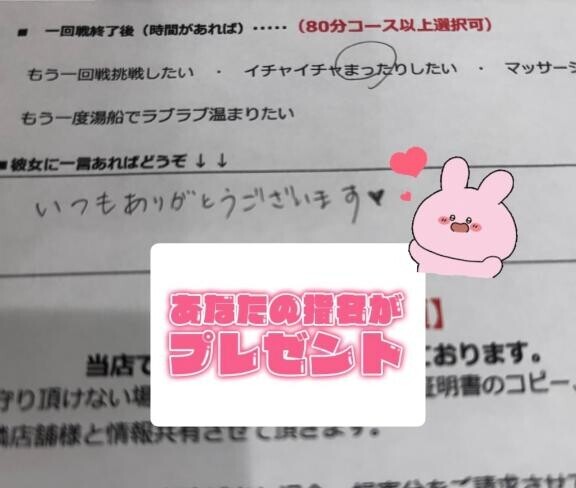 ■ 一回戦終了後（時間があれば）・・・・・（80分コース以上選択可）
もう一回戦挑戦したい ・ イチャイチャまったりしたい ・ マッサー
もう一度湯船でラブラブ温まりたい
■彼女に一言あればどうぞ ↓ ↓
いつもありがとうございます♥
あなたの指名が
プレゼント
】
当店で
ております。
守り頂けない場
証明書のコピー、
隣店舗様と情報共有させて頂きます。